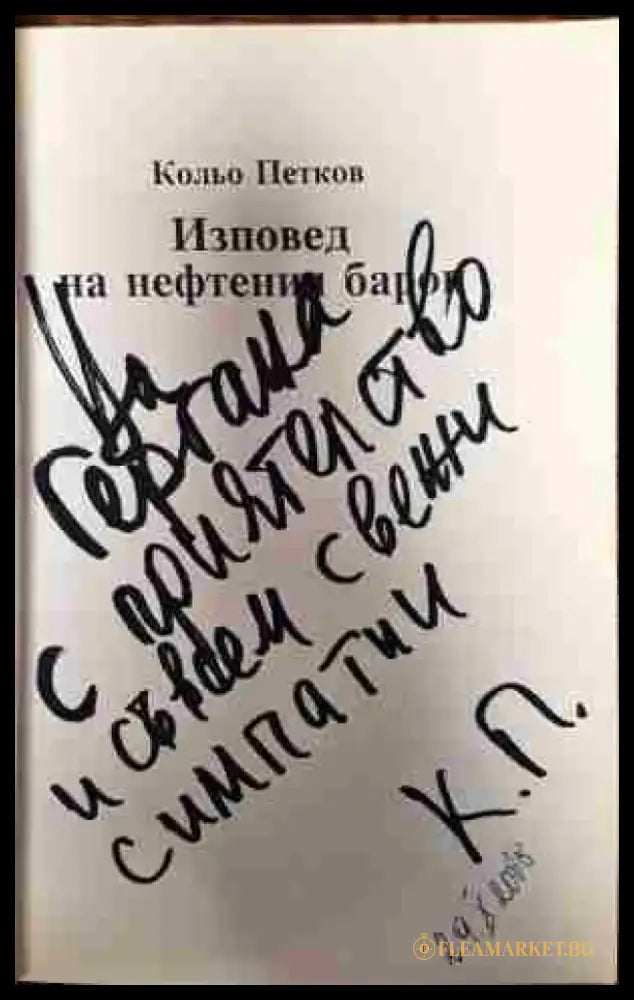 Кольо Петков
Изповед
на нефтения барон
На
Гергана
с приятелство
и съвсем
симпатии
К.П.
FLEAMARKET.BG